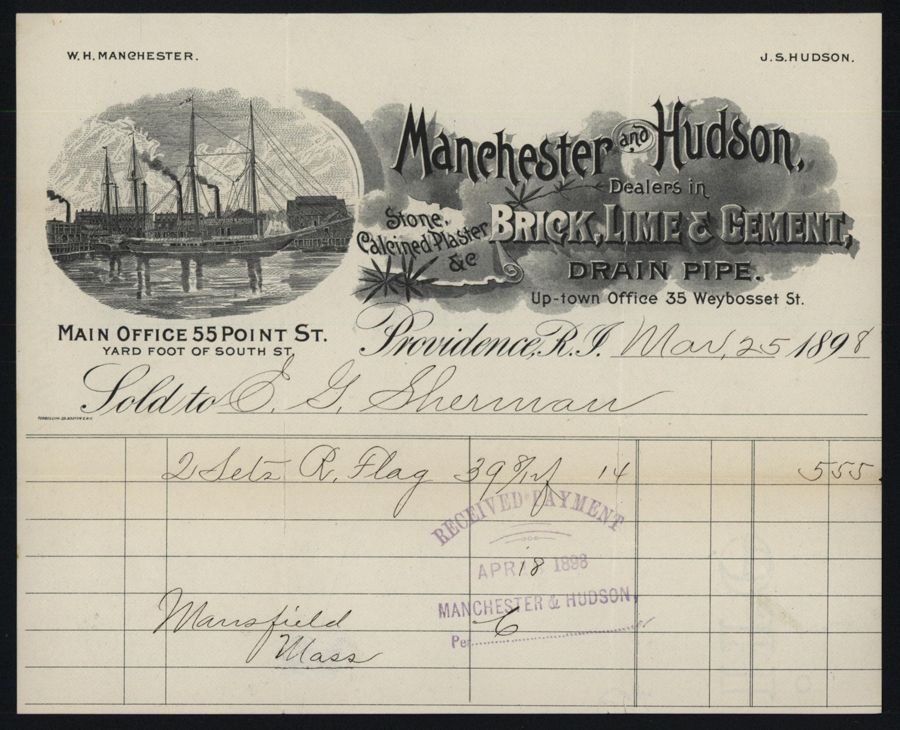 W. H. MANCHESTER.
J. S. HUDSON.
Manchester and Hudson,
Dealers in
Stone, Calcined Plaster &c
BRICK, LIME & CEMENT,
DRAIN PIPE.
Up-town Office 35 Weybosset St.
MAIN OFFICE 55 POINT ST.
YARD FOOT OF SOUTH ST.
Providence, R. I. Mar, 25 1898
Sold to E. G. Sherman
2 Sets R. Flag 39 8/12 14 555
RECEIVED PAYMENT
APR 18 1898
MANCHESTER & HUDSON,
Per C
Mansfield
Mass